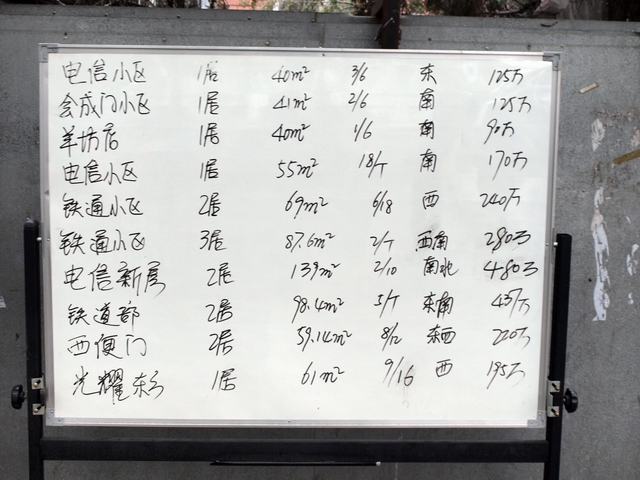 电信小区 1居 40m² 3/6 东 125万
会成门小区 1居 41m² 2/6 南 125万
羊坊店 1居 40m² 1/6 南 90万
电信小区 1居 55m² 18/T 南 170万
铁通小区 2居 69m² 6/18 西 240万
铁通小区 3居 87.6m² 2/T 西南 280万
电信新房 2居 139m² 2/10 南北 480万
铁道部 2居 98.4m² 3/T 东南 437万
西便门 2居 59.14m² 8/12 东西 220万
光耀东方 1居 61m² 9/16 西 195万